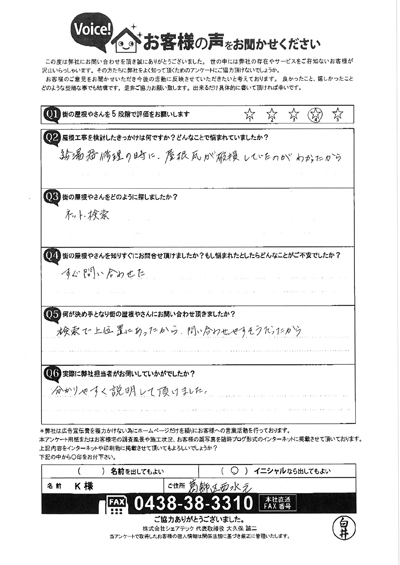 Voice!
お客様の声をお聞かせください
この度は弊社にお問い合わせを頂き誠にありがとうございました。世の中には弊社の存在やサービスをご存知ないお客様が
沢山いらっしゃいます。その方たちに弊社をよく知って頂くためのアンケートにご協力頂けないでしょうか。
お客様のご意見をお聞かせいただき今後の活動に反映させていただきたいと考えております。良かったこと、嬉しかったこと
どのような些細な事でも結構です。是非ご協力お願い致します。出来るだけ具体的に書いて頂ければ幸いです。
Q1 街の屋根やさんを5段階で評価をお願いします
☆ ☆ ☆ ☆ ☆
1 2 3 4 5
Q2 屋根工事を検討したきっかけは何ですか?どんなことで悩まれていましたか?
給湯器修理の時に、屋根瓦が破損していたのがわかったから
Q3 街の屋根やさんをどのように探しましたか?
ネット検索
Q4 街の屋根やさんを知りすぐにお問合せ頂けましたか?もし悩まれたとしたらどんなことがご不安でしたか?
すぐ問い合わせた
Q5 何が決め手となり街の屋根やさんにお問い合わせ頂きましたか?
検索で上位置にあったから、問い合わせやすそうだったから
Q6 実際に弊社担当者がお伺いしていかがでしたか?
分かりやすく説明して頂けました。
*弊社は広告宣伝費を極力かけない為にホームページだけを頼りにお客様への営業活動を行っております。
本アンケート用紙またはお客様宅の調査風景や施工状況、お客様の顔写真を随時ブログ形式のインターネットに掲載させて頂いております。
上記内容をインターネットや印刷物に掲載させて頂いてもよろしいでしょうか?
下記の中から〇印をお付け下さい。
( )名前を出してもよい ( 〇 )イニシャルなら出してもよい
名前 K 様 ご住所 葛飾区西水元
FAX 0438-38-3310 本社直通 FAX番号
ご協力ありがとうございました。
株式会社シェアテック 代表取締役 大久保 誠二
当アンケートで取得したお客様の個人情報は関係法令に基づき厳正に管理いたします。
白井